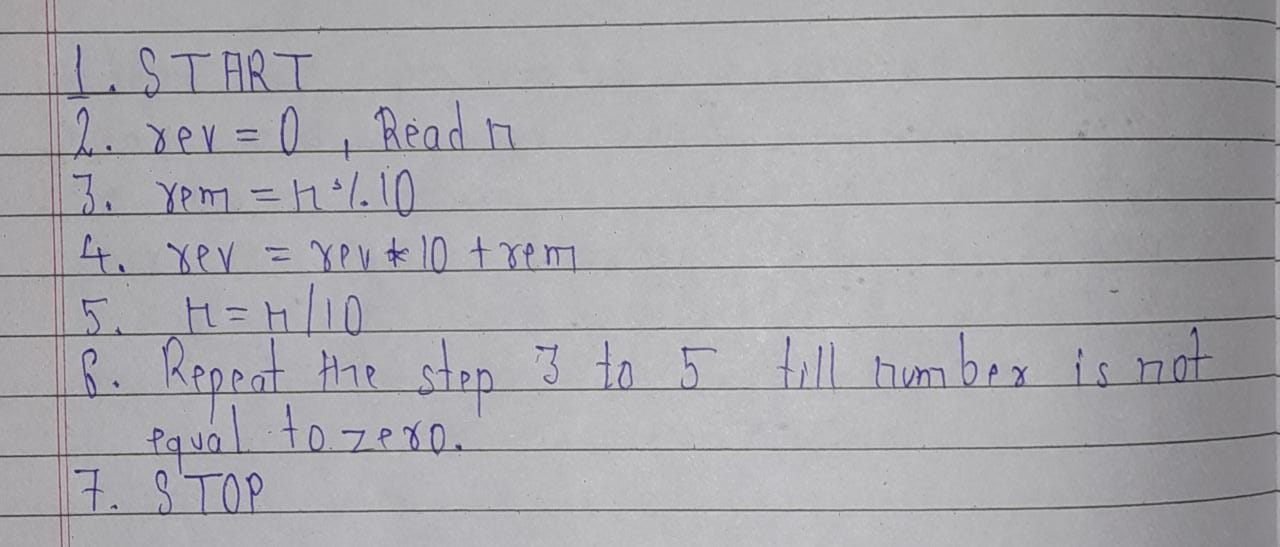 1. START
2. rev = 0 , Read n
3. rem = n % 10
4. rev = rev * 10 + rem
5. n = n / 10
6. Repeat the step 3 to 5 till number is not
equal to zero.
7. STOP